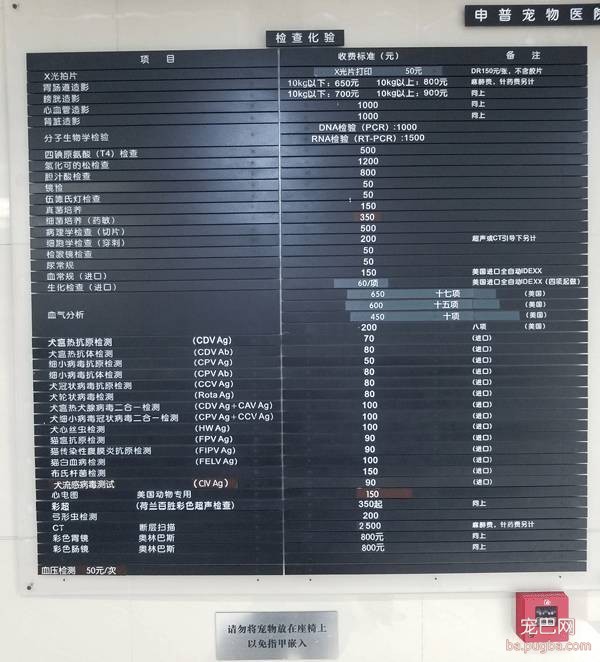 申普宠物医院
检查化验
项 目 收费标准（元） 备 注
X光拍片 X光片打印 50元 DR150元/张，不含胶片
胃肠道造影 10kg以下：650元 10kg以上：800元 麻醉费，针药费另计
膀胱造影 10kg以下：700元 10kg以上：900元 同上
心血管造影 1000 同上
肾脏造影 1000 同上
分子生物学检验 DNA检验（PCR）:1000
RNA检验（RT-PCR）:1500
四碘原氨酸（T4）检查 500
氢化可的松检查 1200
胆汁酸检查 800
镜检 50
伍德氏灯检查 50
真菌培养 150
细菌培养（药敏） 350
病理学检查（切片） 500
细胞学检查（穿刺） 200 超声或CT引导下另计
检眼镜检查 50
尿常规 50
血常规（进口） 150 美国进口全自动IDEXX
生化检查（进口） 60/项 美国进口全自动IDEXX（四项起做）
血气分析 650 十七项 （美国）
600 十五项 （美国）
450 十项 （美国）
200 八项 （美国）
犬瘟热抗原检测 （CDV Ag） 70 （进口）
犬瘟热抗体检测 （CDV Ab） 80 （进口）
细小病毒抗原检测 （CPV Ag） 50 （进口）
细小病毒抗体检测 （CPV Ab） 80 （进口）
犬冠状病毒抗原检测 （CCV Ag） 80 （进口）
犬轮状病毒检测 （Rota Ag） 80 （进口）
犬瘟热犬腺病毒二合一检测 （CDV Ag＋CAV Ag） 100 （进口）
犬细小病毒冠状病毒二合一检测 （CPV Ag＋CCV Ag） 100 （进口）
犬心丝虫检测 （HW Ag） 100 （进口）
猫瘟抗原检测 （FPV Ag） 90 （进口）
猫传染性腹膜炎抗原检测 （FIPV Ag） 90 （进口）
猫白血病检测 （FELV Ag） 100 （进口）
布氏杆菌检测 150 （进口）
犬流感病毒测试 （CIV Ag） 90 （进口）
心电图 美国动物专用 150
彩超 （荷兰百胜彩色超声检查） 350起 同上
弓形虫检测 200
CT 断层扫描 2500 麻醉费，针药费另计
彩色胃镜 奥林巴斯 800元 同上
彩色肠镜 奥林巴斯 800元 同上
血压检测 50元/次
请勿将宠物放在座椅上
以免指甲嵌入
宠巴网
ba.pugba.com